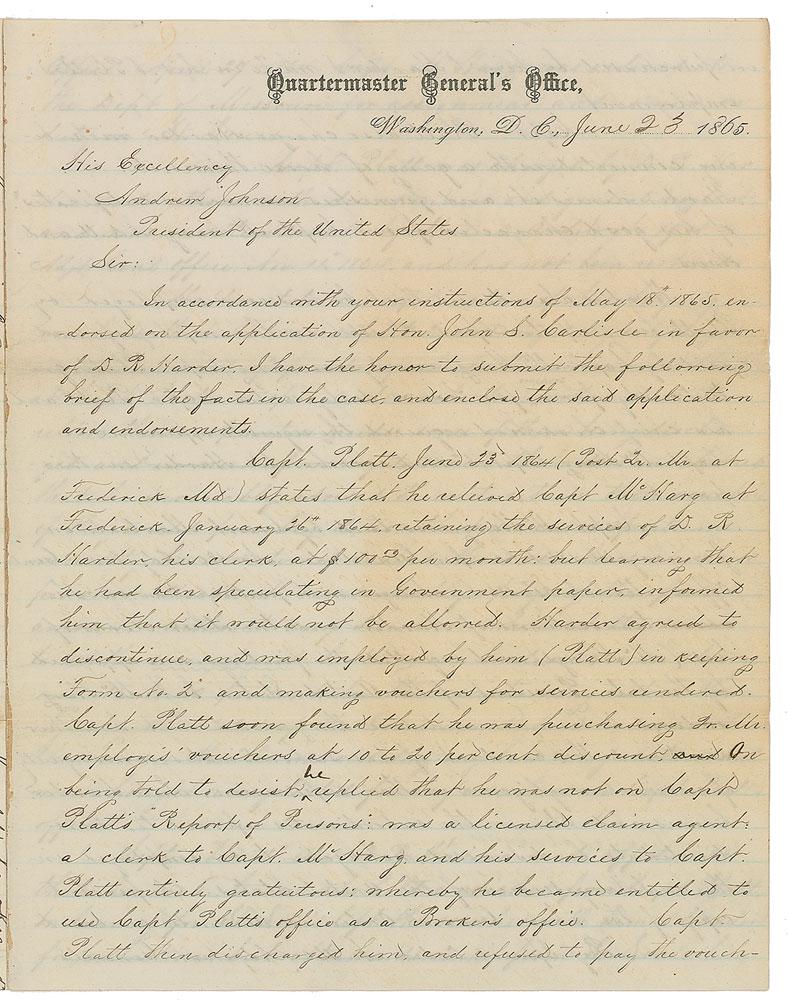 Quartermaster General's Office,
Washington, D. C., June 23 1865.
His Excellency
Andrew Johnson
President of the United States
Sir:
In accordance with your instructions of May 18th 1865, en-
dorsed on the application of Hon. John S. Carlisle in favor
of D. R. Harder, I have the honor to submit the following
brief of the facts in the case, and enclose the said application
and endorsements.
Capt. Platt, June 23d 1864 (Post Qr. Mr. at
Frederick Md) states that he relieved Capt McHarg at
Frederick January 26th 1864, retaining the services of D. R.
Harder, his clerk, at $100.00 per month: but learning that
he had been speculating in Government paper, informed
him that it would not be allowed. Harder agreed to
discontinue, and was employed by him (Platt) in keeping
"Form No. 2", and making vouchers for services rendered.
Capt. Platt soon found that he was purchasing Qr. Mr.
employés' vouchers at 10 to 20 per cent discount. and On
being told to desist, he replied that he was not on Capt
Platt's "Report of Persons": was a licensed claim agent:
a clerk to Capt. McHarg and his services to Capt.
Platt entirely gratuitous: whereby he became entitled to
use Capt Platt's office as a Broker's office. Capt.
Platt then discharged him, and refused to pay the vouch-